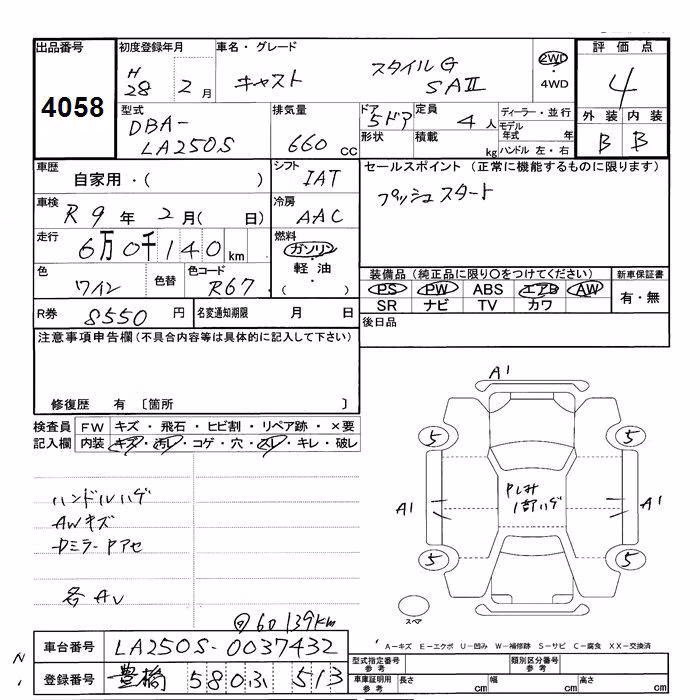 出品番号 初度登録年月 車名・グレード 評価点
4058 H28 2月 キャスト スタイルG SAⅡ 2WD ・ 4WD 4
型式 排気量 ドア 定員 ディーラー・並行 外装 内装
DBA- LA250S 660 cc 5ドア 4人 モデル年式 年 B B
形状 積載 kg ハンドル 左・右
車歴 シフト セールスポイント (正常に機能するものに限ります)
自家用・( ) IAT プッシュスタート
車検 冷房
R9年 2月( 日) AAC
走行 燃料
6万0千140km ガソリン ・ 軽油 ・ ( )
色 色替 色コード 装備品(純正品に限り○をつけてください) 新車保証書
ワイン R67 PS PW ABS エアB AW 有・無
SR ナビ TV カワ
R券 8550円 名変通知期限 月 日 後日品
注意事項申告欄(不具合内容等は具体的に記入して下さい)
修復歴 有 〔箇所 〕
検査員 FW キズ・飛石・ヒビ割・リペア跡・×要
記入欄 内装 キズ・汚レ・コゲ・穴・スレ・キレ・破レ
A1
5 5
ハンドルハゲ
AWキズ
A1 A1
5 5
各AU
60139km
スペア
車台番号 LA250S-0037432
A－キズ E－エクボ U－凹み W－補修跡 S－サビ C－腐食 XX－交換済
登録番号 豊橋 580 ふ 513
型式指定番号 参考 類別区分番号 参考
車庫証明用 参考 長さ cm 幅 cm 高さ cm